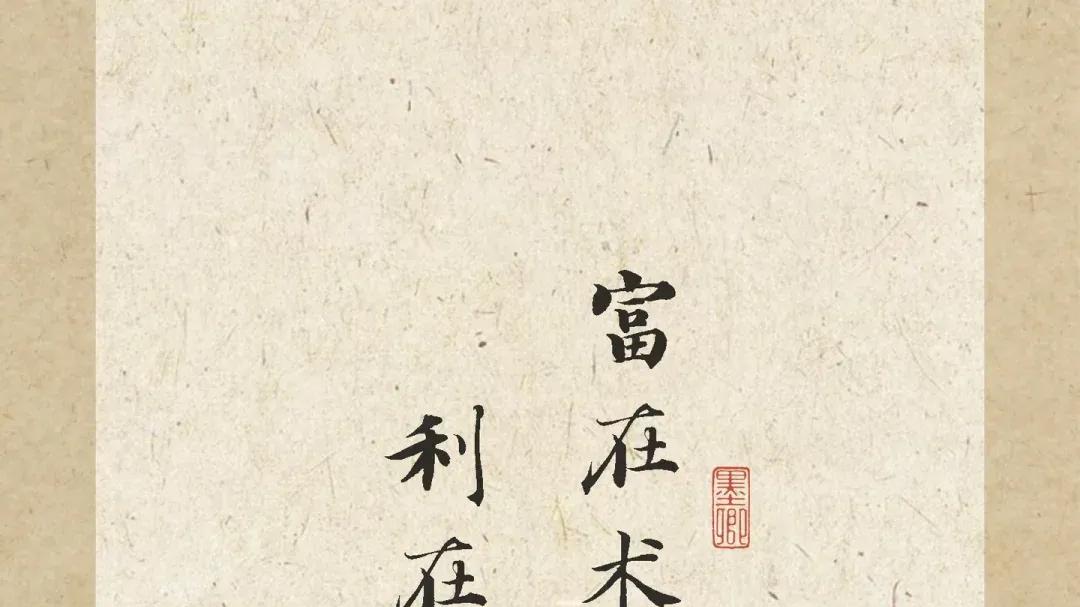 富在术
利在
墨卿